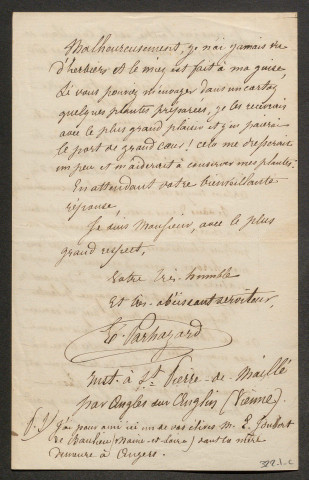 Malheureusement, je n'ai jamais vu
d'herbiers et le mien est fait à ma guise.
Si vous pouvez m'envoyer dans un carton
quelques plantes préparées, je les recevrais
avec le plus grand plaisir et j'en paierai
le port de grand cœur! cela me dresserait
un peu et m'aiderait à conserver mes plantes.
En attendant votre bienveillante
réponse,
Je suis Monsieur, avec le plus
grand respect,
Votre très humble
Et très obéissant serviteur,
Parhazard
Inst. à St. Pierre-de-Maillé
par Angles sur Anglin (Vienne).
P.S. J'ai pour ami ici un de vos élèves M. E. Joubert
de Beaulieu (Maine-et-Loire) dont la mère
demeure à Angers.
322.1.c